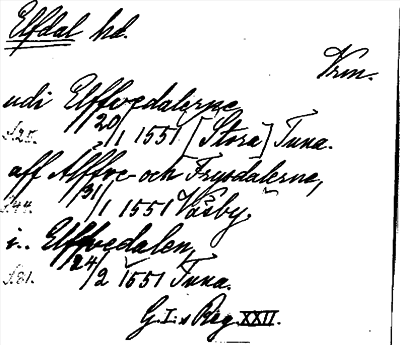 Elfdal hd.
Vrm.
udi Elffvedalerne
20/1 1551 [Stora] Tuna.
aff Alffve- och Frysdalerne,
31/1 1551 Väsby.
i.. Elffvedalen,
24/2 1551 Tuna.
G. I:s Reg. XXII.